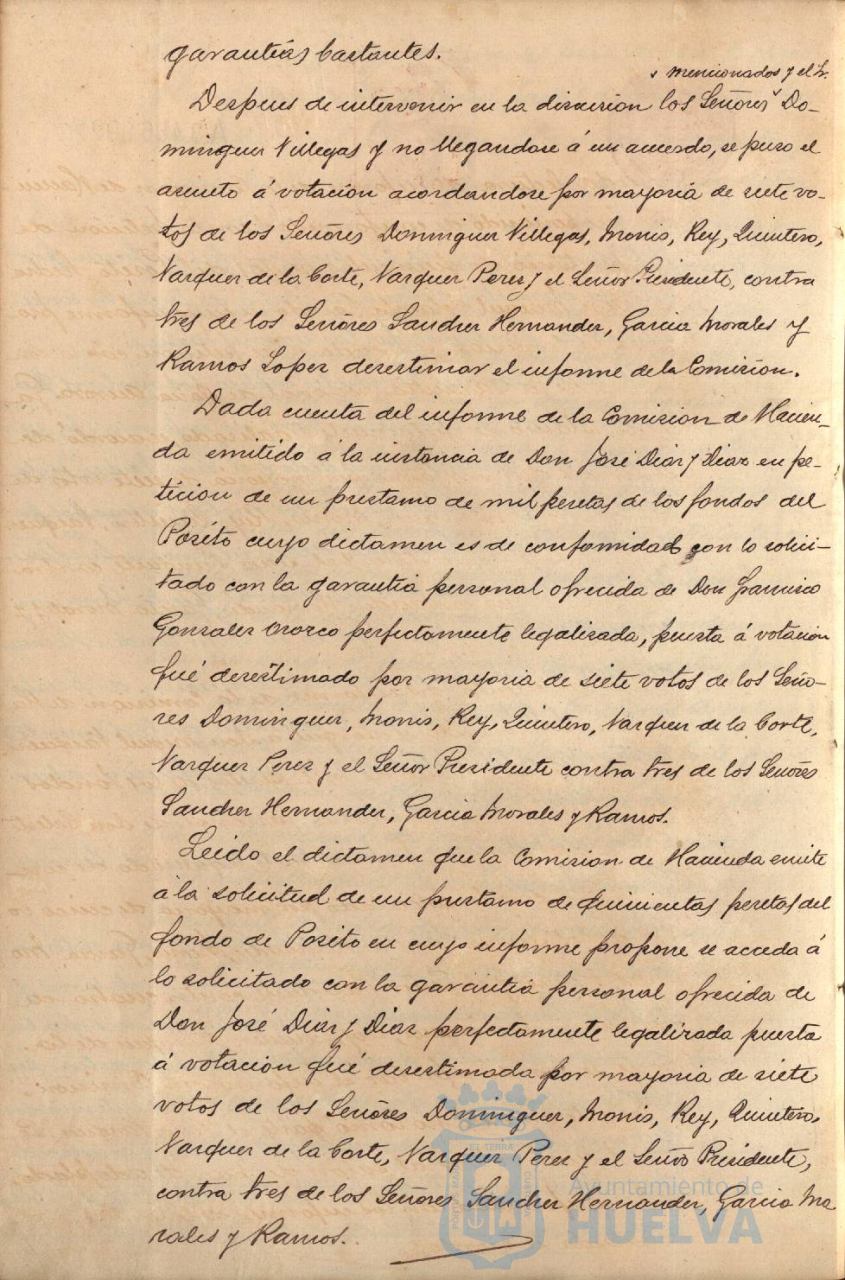 garantías bastantes.
mencionados y el Sr.
Despues de intervenir en la discusion los Señores Do-
minguez Villegas y no llegandose á un acuerdo, se puso el
asunto á votación acordandose por mayoria de siete vo-
tos de los Señores Dominguez Villegas, Monis, Rey, Quintero,
Vazquez de la Corte, Vazquez Perez y el Señor Presidente, contra
tres de los Señores Sanchez Hernandez, Garcia Morales y
Ramos Lopez desestimar el informe de la Comision.
Dada cuenta del informe de la Comision de Hacien-
da emitido á la instancia de Don José Diaz y Diaz en pe-
ticion de un prestamo de mil pesetas de los fondos del
Posito cuyo dictamen es de conformidad con lo solici-
tado con la garantia personal ofrecida de Don Francisco
Gonzalez Orozco perfectamente legalizada, puesta á votación
fué desestimado por mayoria de siete votos de los Seño-
res Dominguez, Monis, Rey, Quintero, Vazquez de la Corte,
Vazquez Perez y el Señor Presidente contra tres de los Señores
Sanchez Hernandez, Garcia Morales y Ramos.
Leido el dictamen que la Comision de Hacienda emite
á la solicitud de un prestamo de quinientas pesetas del
fondo de Posito en cuyo informe propone se acceda á
lo solicitado con la garantia personal ofrecida de
Don José Diaz y Diaz perfectamente legalizada puesta
á votación fué desestimada por mayoria de siete
votos de los Señores Dominguez, Monis, Rey, Quintero,
Vazquez de la Corte, Vazquez Perez y el Señor Presidente,
contra tres de los Señores Sanchez Hernandez, Garcia Mo
rales y Ramos.
Ayuntamiento de
HUELVA